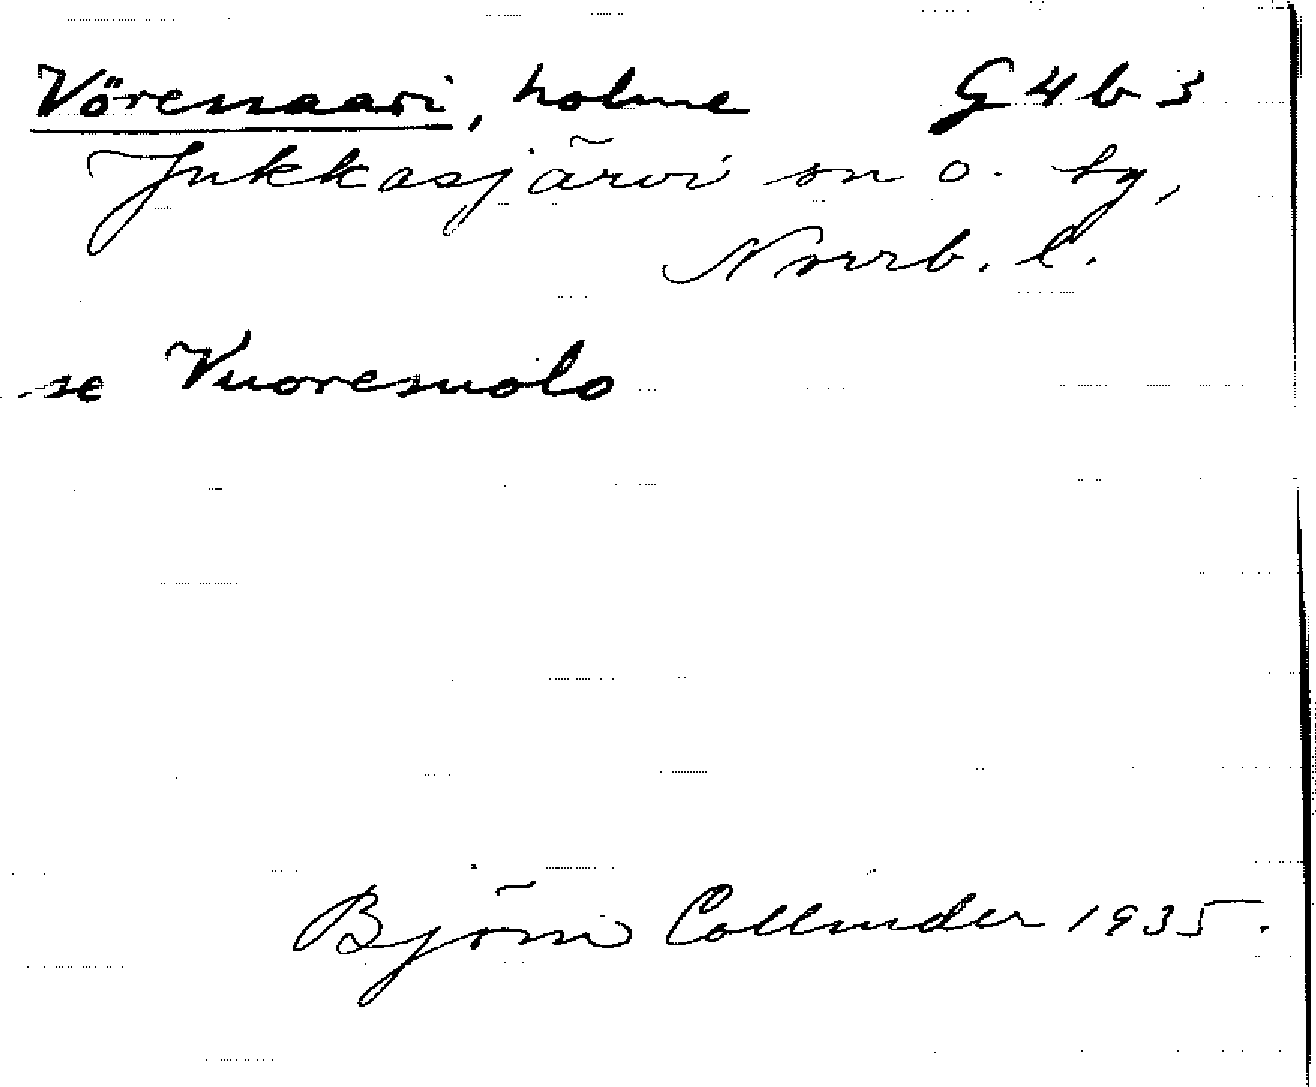 Vörensaari, holme G4b3
Jukkasjärvi sn o. tg,
Norrb. l.
se Vuoresuolo
Björn Collinder 1935.